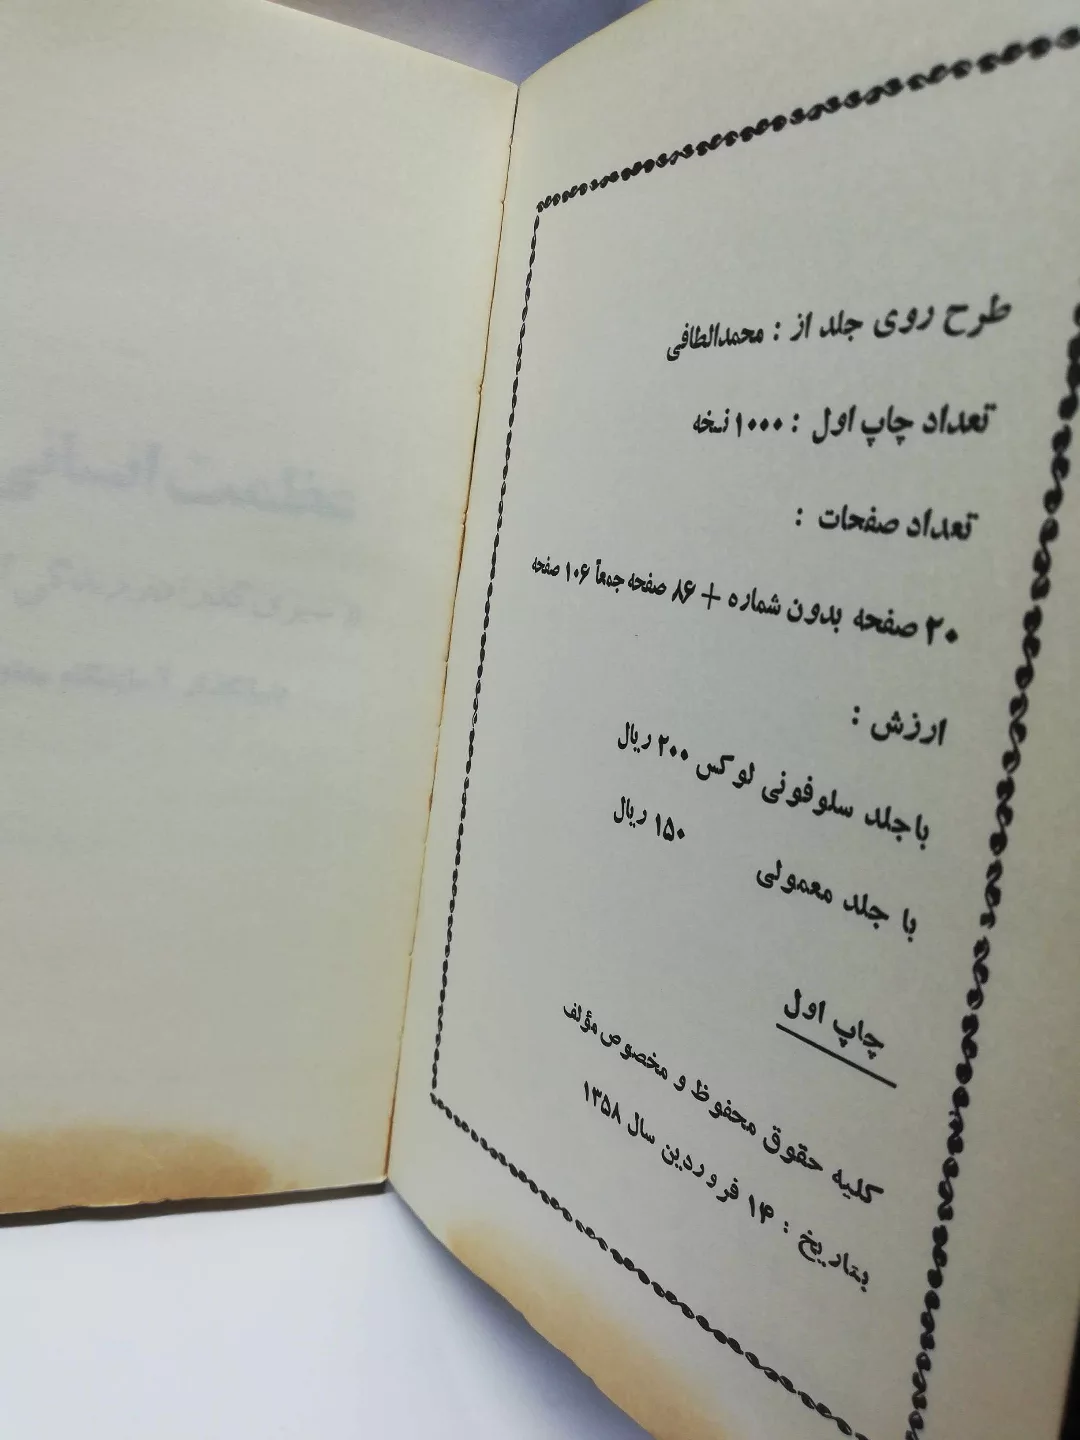 طرح روی جلد از : محمدالطافی
تعداد چاپ اول : ۱۰۰۰ نسخه
تعداد صفحات :
۲۰ صفحه بدون شماره + ۸۶ صفحه جمعاً ۱۰۶ صفحه
ارزش :
با جلد سلوفونی لوکس ۲۰۰ ریال
با جلد معمولی ۱۵۰ ریال
چاپ اول
کلیه حقوق محفوظ و مخصوص مؤلف
بتاریخ : ۱۴ فروردین سال ۱۳۵۸